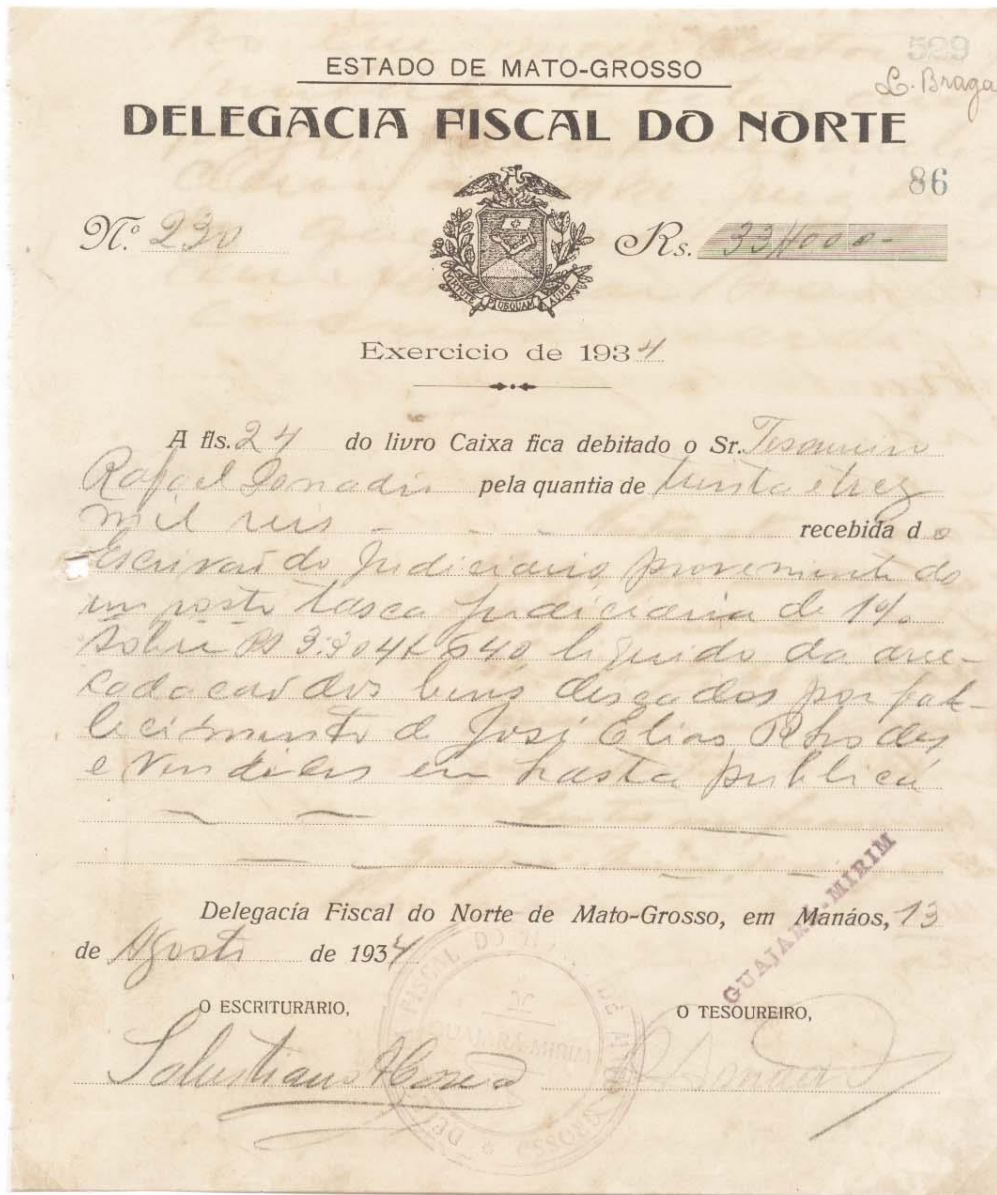 529
L. Braga
ESTADO DE MATO-GROSSO
DELEGACIA FISCAL DO NORTE
86
N.º 230 Rs. 33$000-
VIRTUTE PLUSQUAM AURO
Exercicio de 1934
A fls. 24 do livro Caixa fica debitado o Sr. Tesoureiro
Rafael pela quantia de trinta e trez
mil reis - - - - recebida do
Escrivão do Judiciario proveniente do
imposto taxa judiciaria de 1%
sobre Rs 3:304$640 liquido da arre-
cadacão dos bens por fale-
cimento de José Elias
e vendidos em hasta publica
GUAJARÁ-MIRIM
Delegacia Fiscal do Norte de Mato-Grosso, em Manáos, 13
de Agosto de 1934
O ESCRITURARIO, O TESOUREIRO,
Salustiano
GUAJARÁ-MIRIM